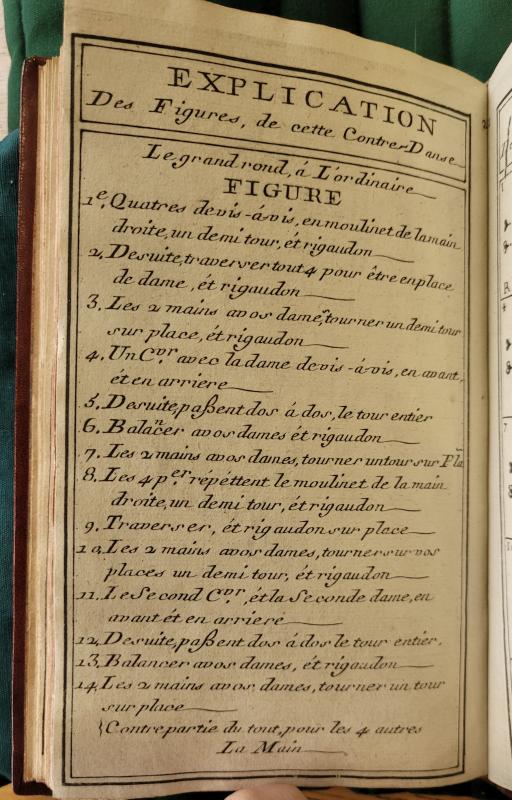 EXPLICATION
Des Figures, de cette Contre-Danse
Le grand rond, á L'ordinaire
FIGURE
1e, Quatres de vis-á-vis, en moulinet de la main
droite, un demi tour, ét rigaudon
2, De suite, traverser tout 4 pour être en place
de dame, ét rigaudon
3, Les 2 mains a vos dames, tourner un demi tour
sur place, ét rigaudon
4, Un C.vr avec la dame de vis-á-vis, en avant,
ét en arriere
5, De suite, paßent dos á dos, le tour entier
6, Balancer a vos dames ét rigaudon
7, Les 2 mains a vos dames, tourner un tour sur Pla
8, Les 4 p.ers répéttent le moulinet de la main
droite, un demi tour, ét rigaudon
9, Traverser, ét rigaudon sur place
10, Les 2 mains a vos dames, tourner sur vos
places un demi tour, ét rigaudon
11, Le Second C.vr, ét la Seconde dame, en
avant ét en arriere
12, De suite, paßent dos á dos le tour entier.
13, Balancer a vos dames, ét rigaudon
14, Les 2 mains a vos dames, tourner un tour
sur place
Contre partie du tout, pour les 4 autres
La Main